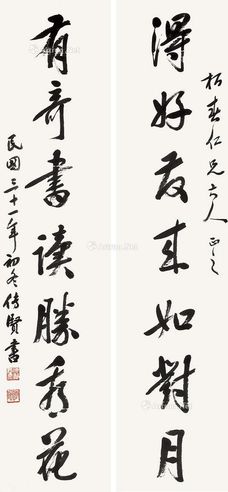 仁兄大人正之
得好友來如對月
有奇書讀勝看花
民國三十一年初冬傳賢書